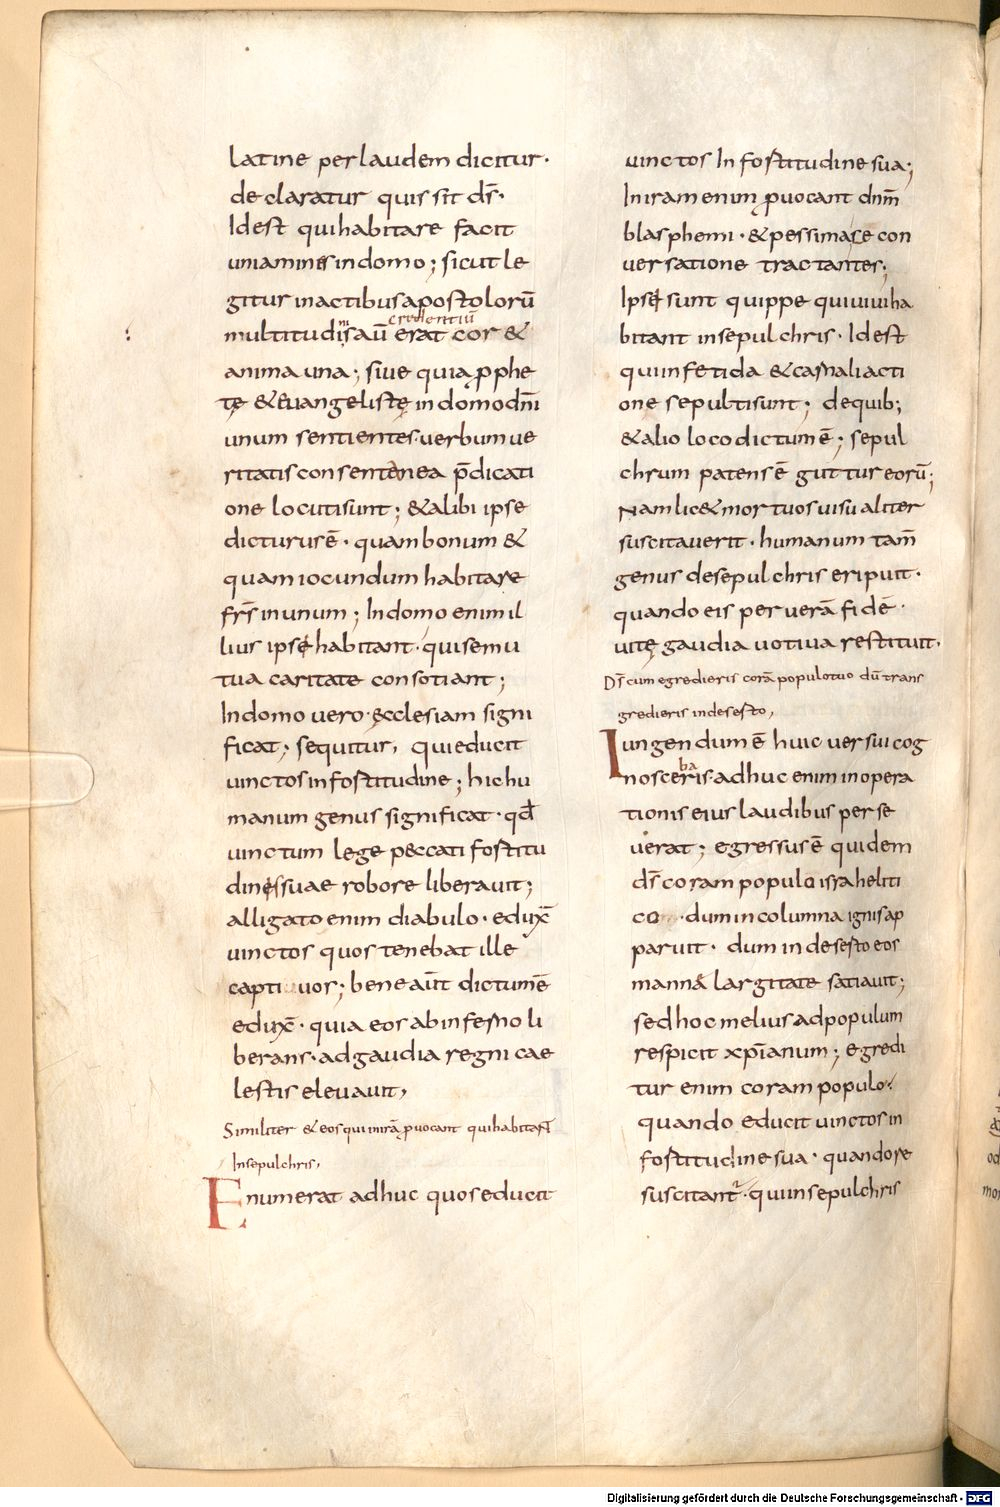 latine per laudem dicitur·
declaratur quis sit ds̄·
Idest qui habitare facit
uniamines in domo; sicut le
gitur in actibus apostolorū
credentiū
multitudinis aū erat cor &
anima una; siue quia ꝓphe
tę & euangelistę in domo dn̄i
unum sentientes· uerbum ue
ritatis consentanea p̄dicati
one locuti sunt; & alibi ipse
dicturus ē· quam bonum &
quam iocundum habitare
frs̄ in unum; In domo enim il
lius ipsę habitant· qui se mu
tua caritate consotiant;
In domo uero ęcclesiam signi
ficat; sequitur, qui educit
uinctos in fortitudine; hic hu
manum genus significat· qđ
uinctum lege peccati fortitu
dinę suae robore liberauit;
alligato enim diabulo· eduxc̄
uinctos quos tenebat ille
capti uos; bene aūt dictum ē
eduxc̄· quia eos ab inferno li
berans· ad gaudia regni cae
lestis eleuauit,
Similiter & eos qui in irā ꝓuocant qui habitant
In sepulchris,
Enumerat adhuc quos educit
uinctos In fortitudine sua;
In iram enim ꝓuocant dnm̄
blasphemi· & pessima se con
uersatione tractantes;
Ipsę sunt quippe qui uiui ha
bitant in sepulchris· Idest
qui in fetida & carnali acti
one sepulti sunt; de quib;
& alio loco dictum ē; sepul
chrum patens ē guttur eorū;
Nam lic& mortuos uisualiter
suscitauerit· humanum tam̄
genus de sepulchris eripuit·
quando eis per uerā fidē·
uitę gaudia uotiua restituit·
Ds̄ cum egredieris corā populo tuo dū trans
gredieris in deserto,
Iungendum ē huic uersui cog
ba
nosceris· adhuc enim in opera
tionis eius laudibus perse
uerat; egressus ē quidem
ds̄ coram populo israheliti
co· dum in columna ignis ap
paruit· dum in deserto eos
mannā largitate satiauit;
sed hoc melius ad populum
respicit xp̄ianum; egredi
tur enim coram populo·
quando educit uinctos in
fortitudine sua· quando re
suscitant· qui in sepulchris
Digitalisierung gefördert durch die Deutsche Forschungsgemeinschaft - DFG